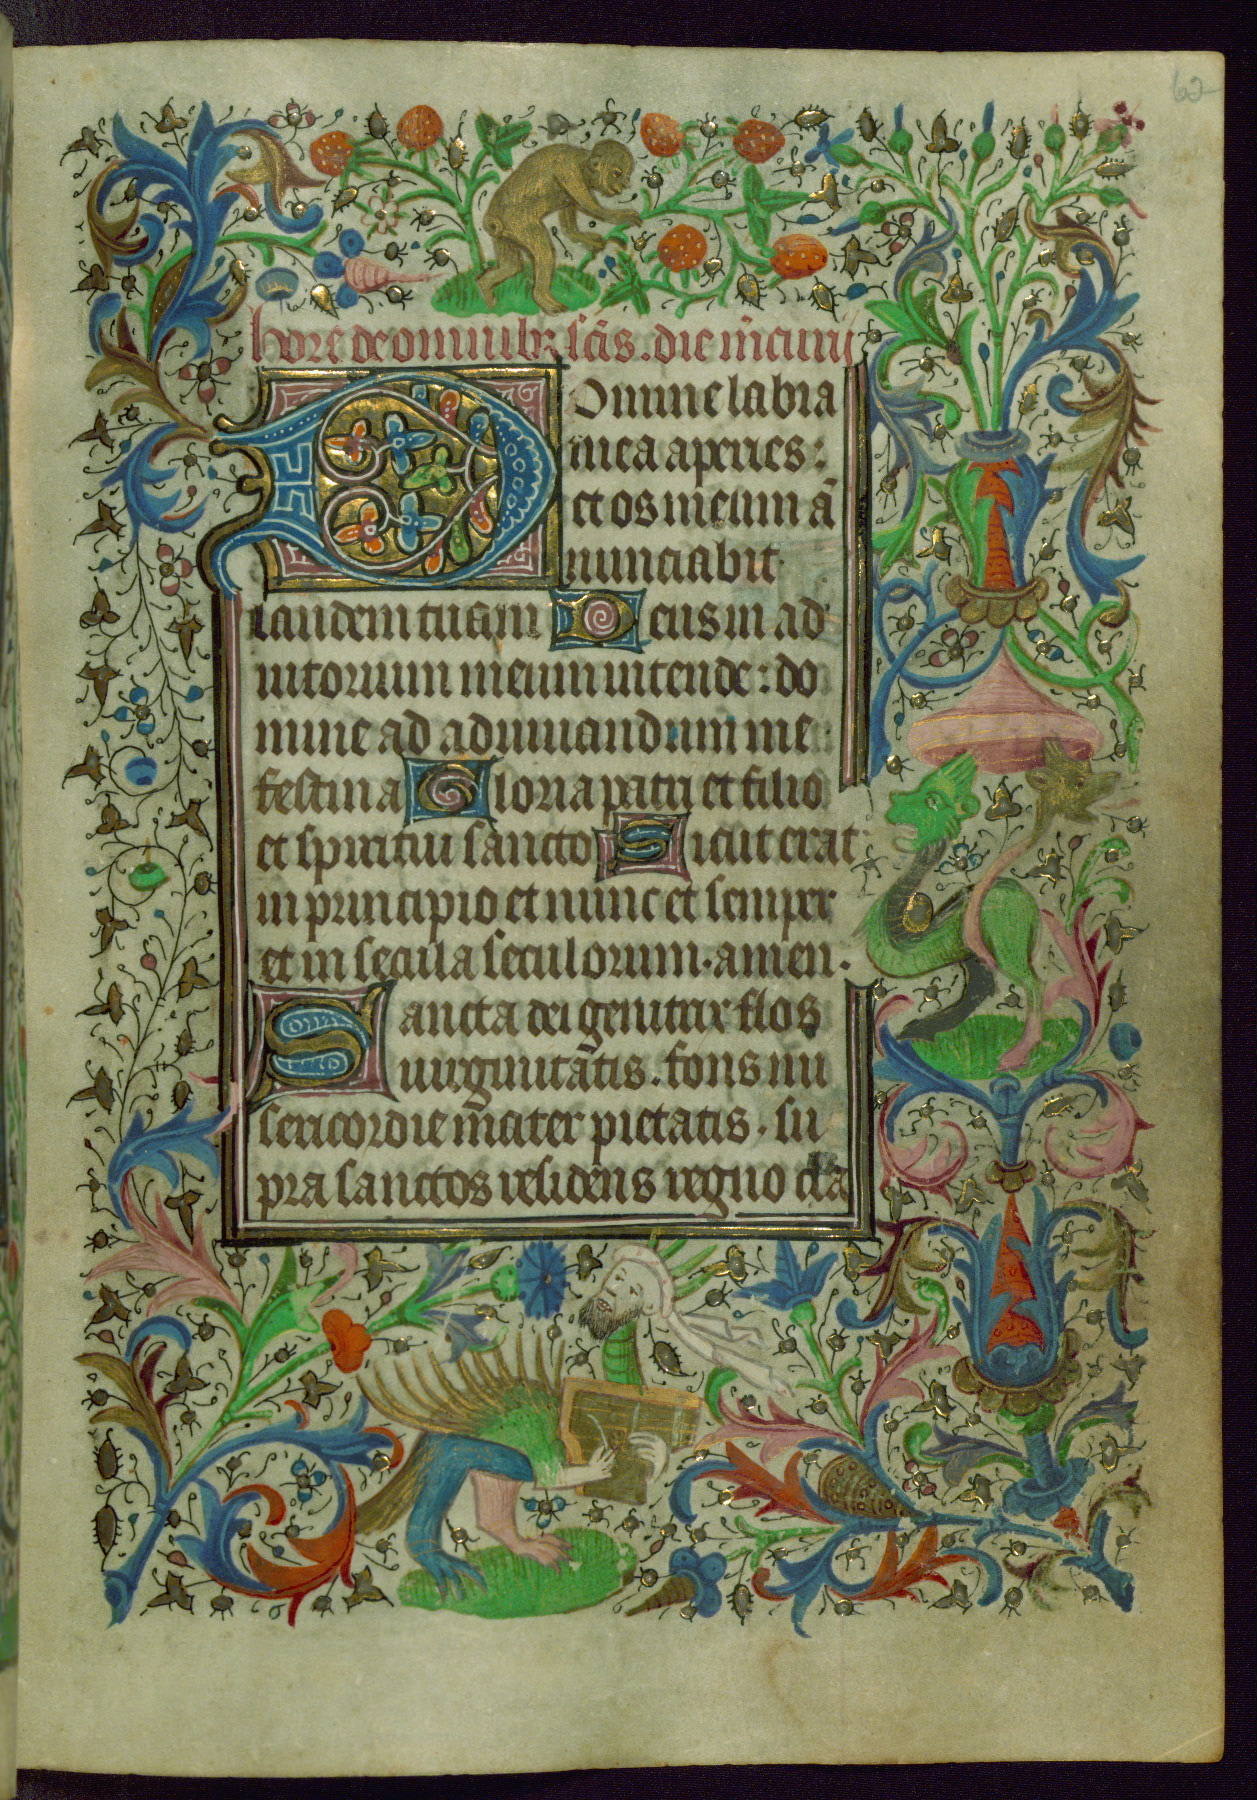 62
hore de omnibꝫ scīs . die mẽcurij
Domine labra
mea aperies :
et os meum ā
nunciabit
laudem tuam Deus in ad
iutorium meum intende : do
mine ad adiuuandum me
festina Gloria patri et filio
et spiritui sancto Sicut erat
in principio et nunc et semper
et in secula seculorum . amen .
Sancta dei genitrix flos
uirginitatis . fons mi
sericordie mater pietatis . su
pra sanctos residens regno cla